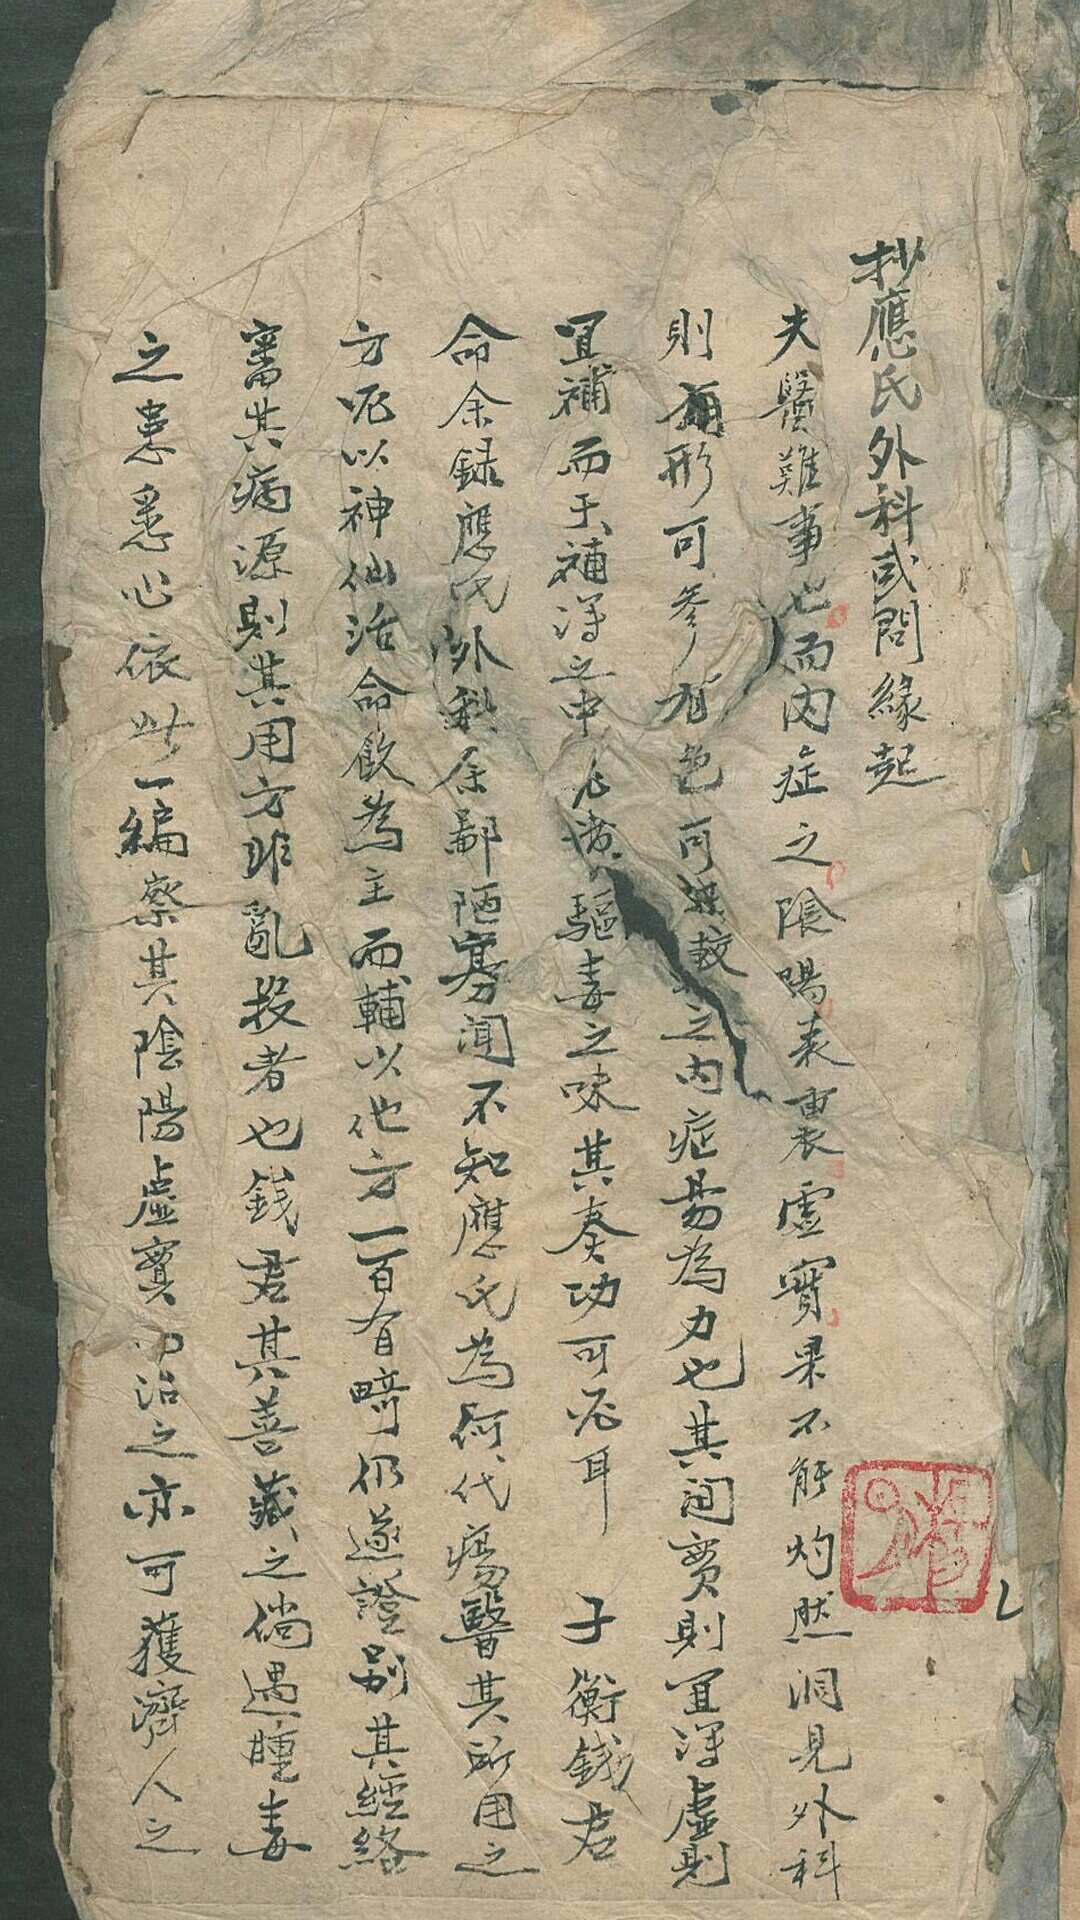 抄應氏外科或問緣起
夫醫難事也而内症之陰陽表裏虛實果不能灼然洞見外科
則有形可參有色可驗較之内症易為力也其間實則宜瀉虛則
宜補而于補瀉之中 驅毒之味其奏功可必耳 子衡錢君
命余録應氏外科余鄙陋寡聞不知應氏為何代瘍醫其所用之
方咒以神仙活命飲為主而輔以他方一百有畸仍逐證别其經絡
審其病源則其用方非亂投者也錢君其善藏之倘遇腫毒
之患悉心依此一編察其陰陽虛實而治之亦可獲濟人之